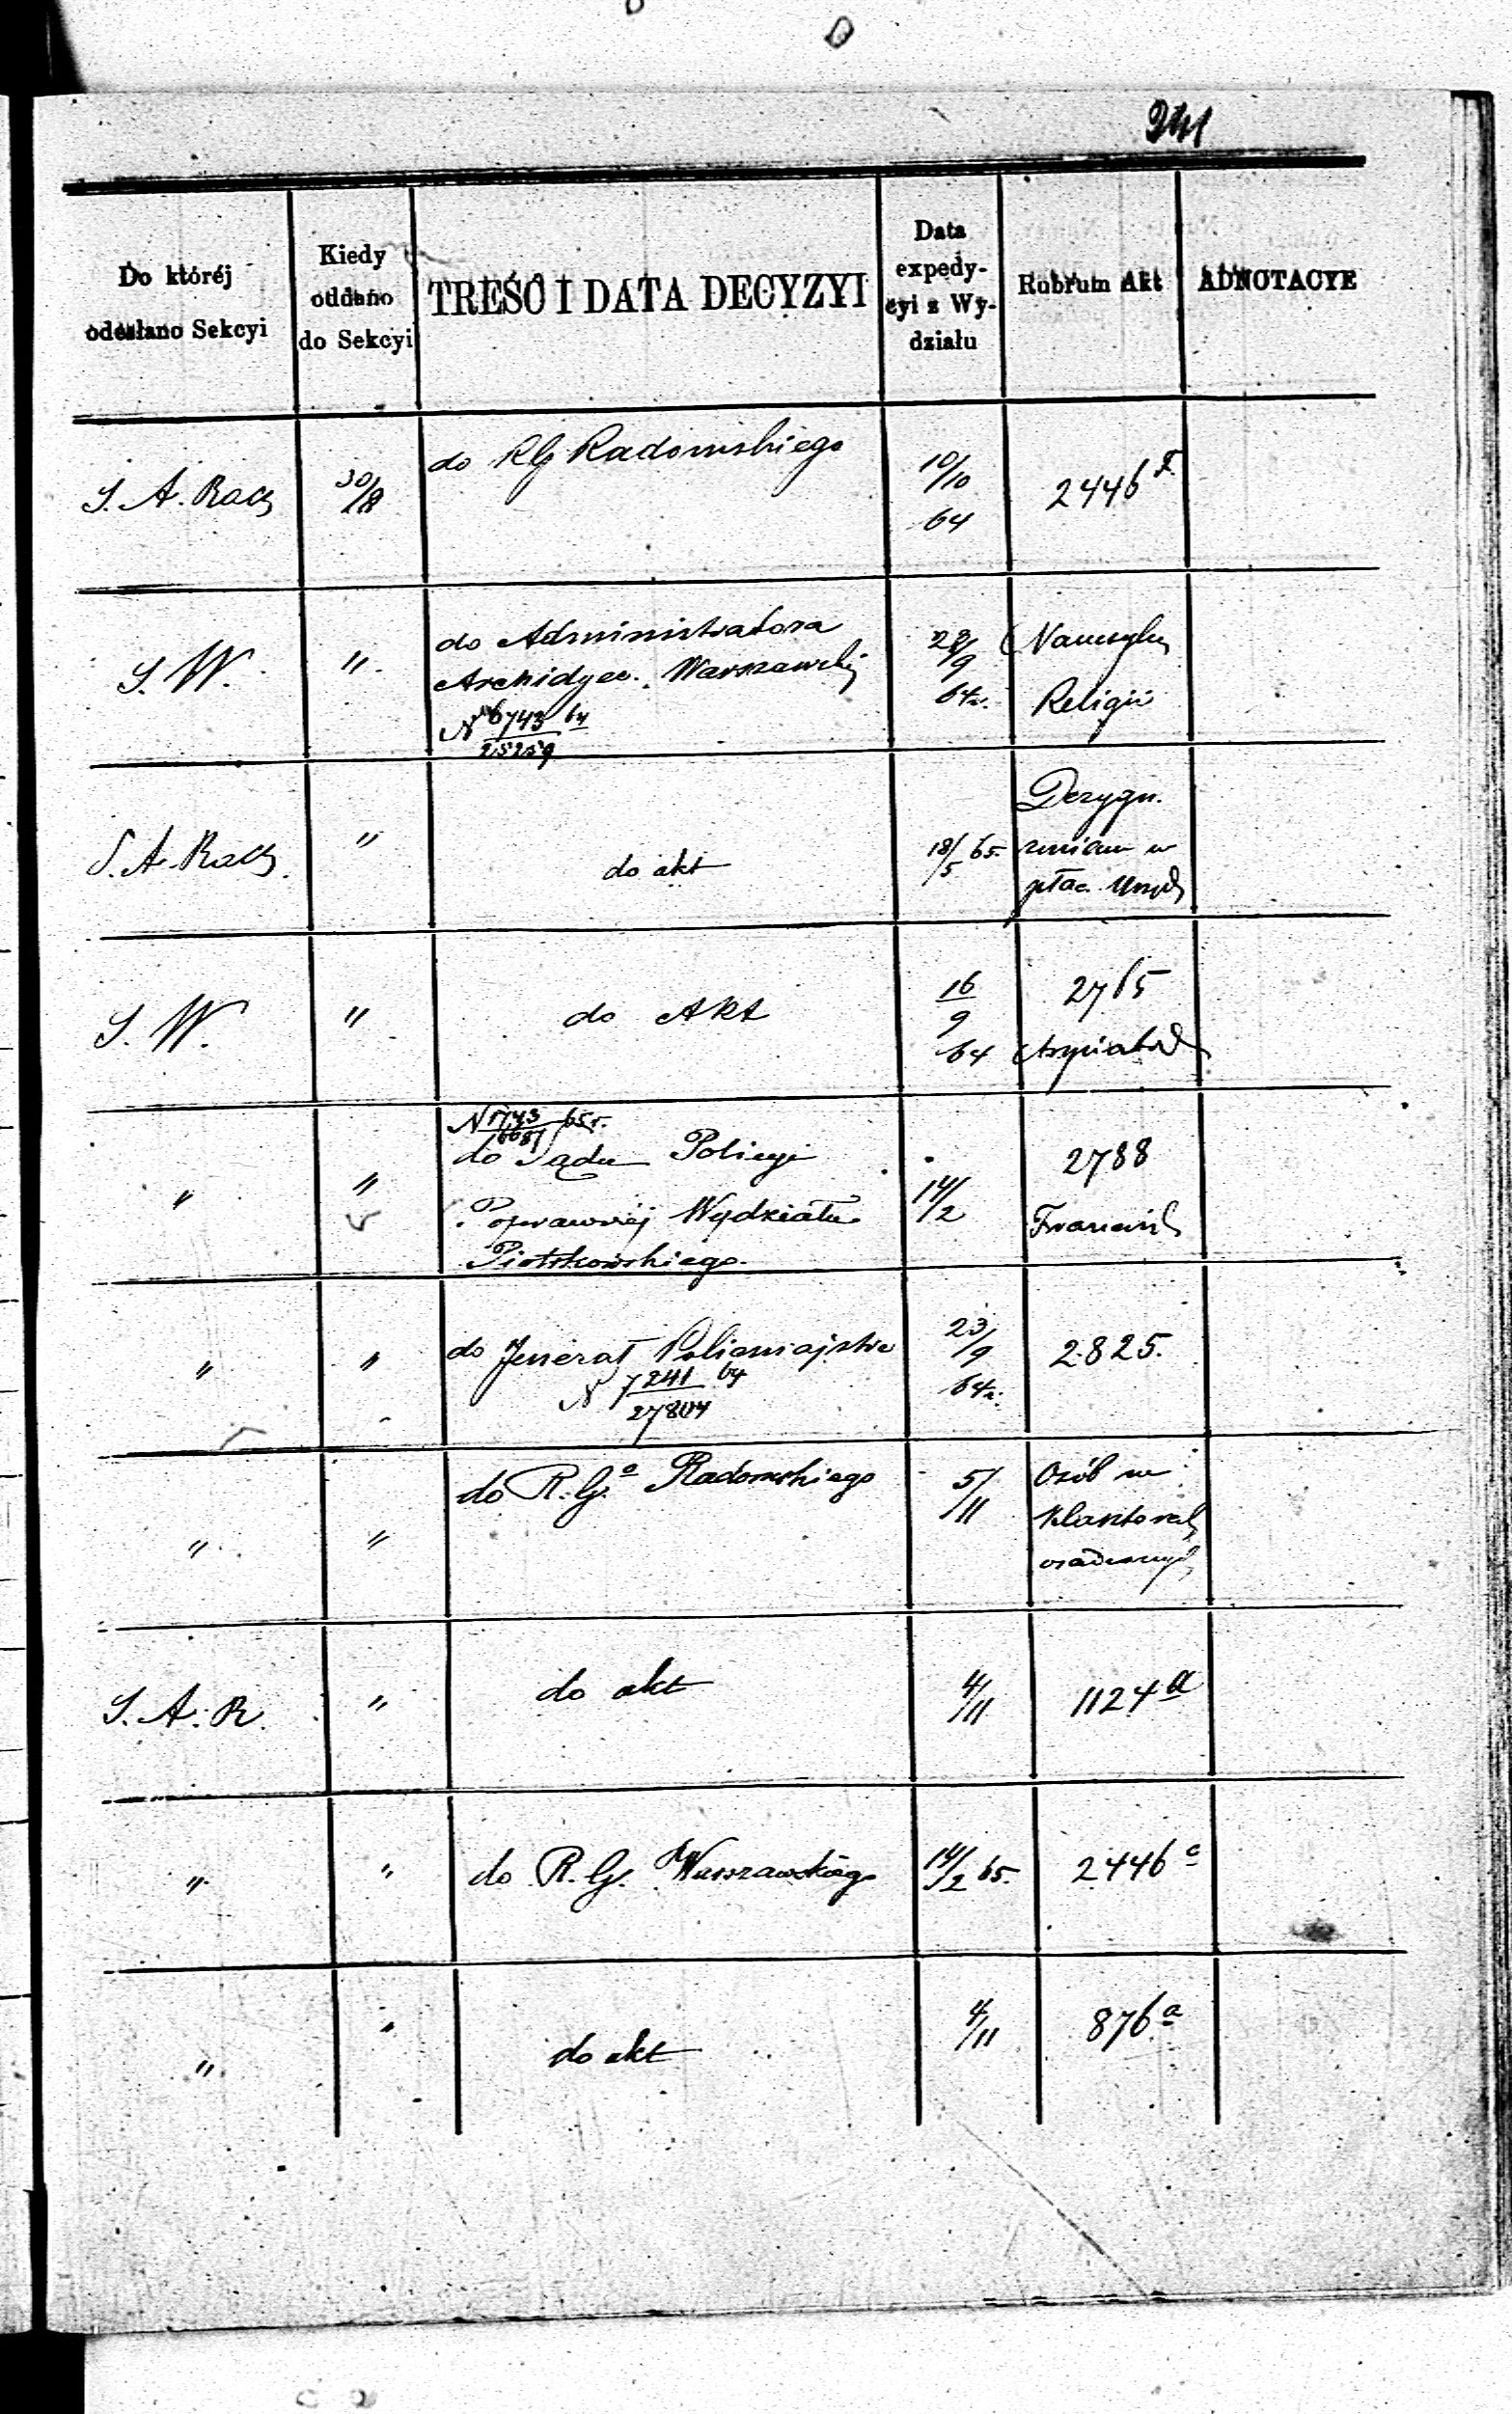 241
Do któréj odesłano Sekcyi
Kiedy oddano do Sekcyi
TREŚĆ I DATA DECYZYI
Data expedycyi z Wydziału
Rubrum Akt
ADNOTACYE
S. A. Rach
30/8
do RG Radomskiego
10/10 64
2446 F.
S. W.
"
do Administratora
Archidyec. Warszawskiéj
N 6743/25259 64
28/9 64 r.
Religii
S. A. Rach.
"
do akt
18/5 65.
Dezygn.
zmian w
płac. Urzęd
S. W.
"
do Akt
16/9 64
2765
"
"
65 r.
do Sądu Policyi
Poprawczéj Wydziału
Piotrkowskiego
14/2
2788
"
"
do Jenerał Policmajstra
N 7241/27804 64
23/9 64 r.
2825.
"
"
do R. G.o Radomskiego
5/11
Osób w
klasztorach
osadzonych
S. A. R.
"
do akt
4/11
1124 a
"
"
do R. G. Warszawskiego
14/2 65.
2446 c
"
"
do akt
4/11
876 a